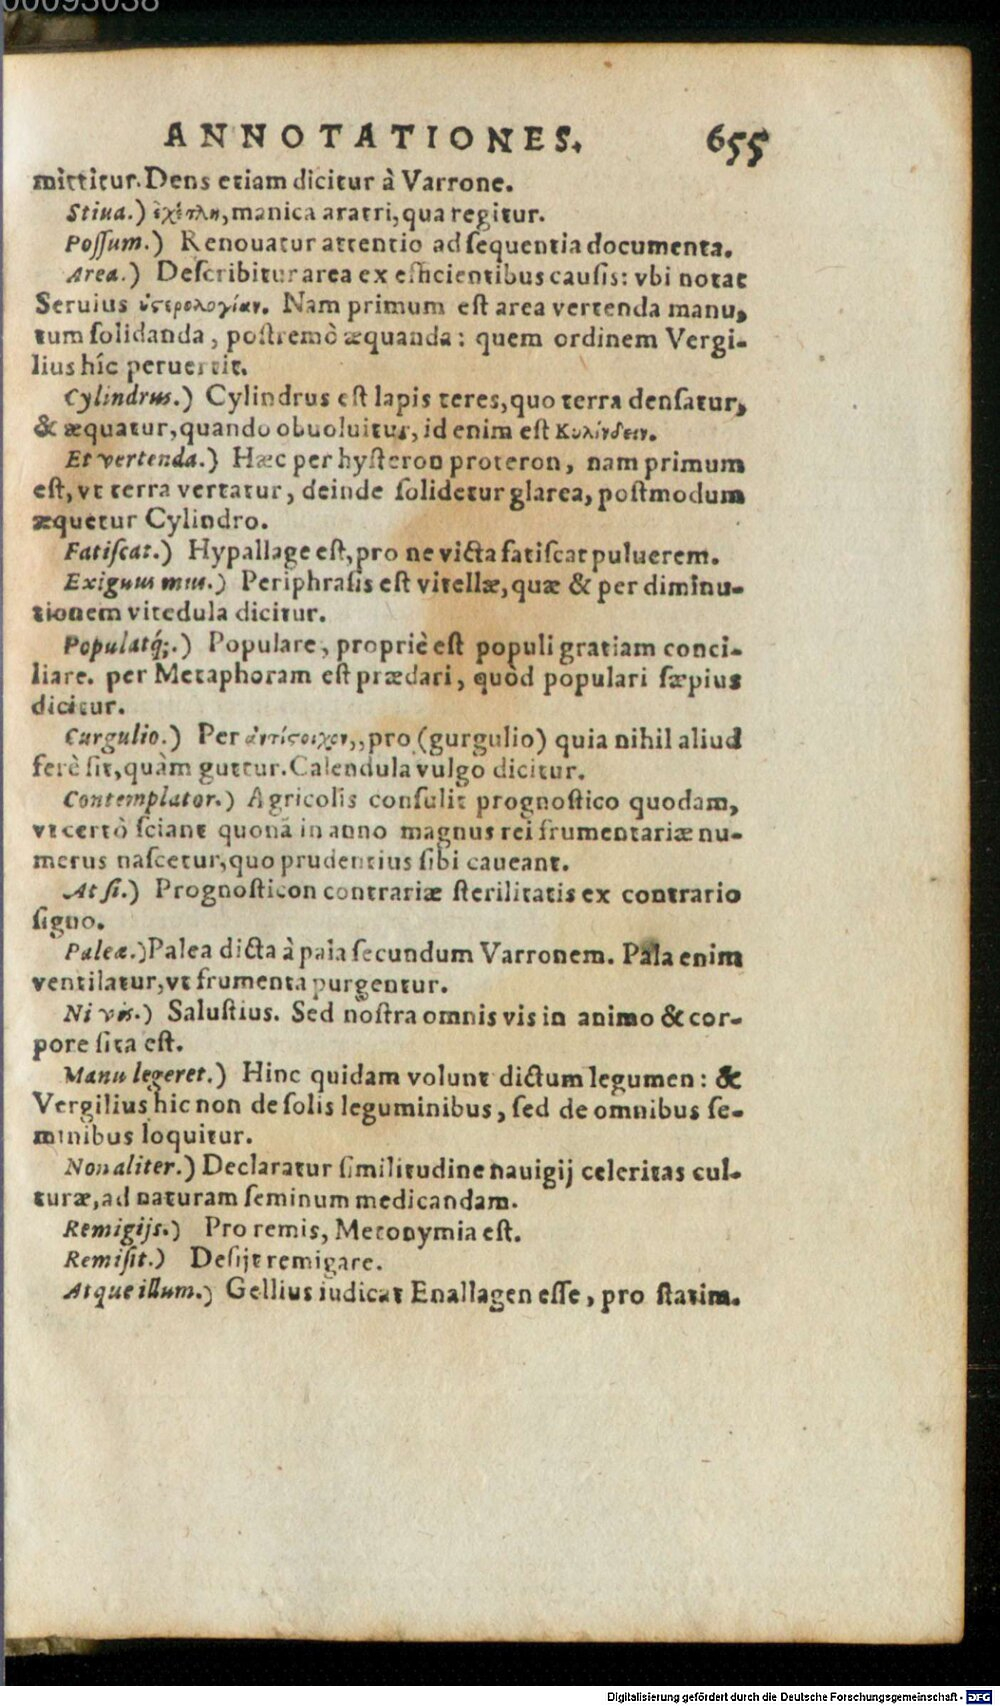 00093038
ANNOTATIONES. 655
mittitur. Dens etiam dicitur à Varrone.
Stiua.) ἐχέτλη, manica aratri, qua regitur.
Poſſum.) Renouatur attentio ad ſequentia documenta.
Area.) Deſcribitur area ex efficientibus cauſis: vbi notat
Seruius ὑϛερολογίαν. Nam primum eſt area vertenda manu,
tum ſolidanda, poſtremò æquanda: quem ordinem Vergi-
lius hîc peruertit.
Cylindrus.) Cylindrus eſt lapis teres, quo terra denſatur,
& æquatur, quando obuoluitur, id enim eſt Κυλίνδειν.
Et vertenda.) Hæc per hyſteron proteron, nam primum
eſt, vt terra vertatur, deinde ſolidetur glarea, poſtmodum
æquetur Cylindro.
Fatiſcat.) Hypallage eſt, pro ne victa fatiſcat puluerem.
Exiguus mus.) Periphraſis eſt vitellæ, quæ & per diminu-
tionem vitedula dicitur.
Populatq́;.) Populare, propriè eſt populi gratiam conci-
liare. per Metaphoram eſt prædari, quòd populari ſæpius
dicitur.
Curgulio.) Per ἀντίϛοιχον,, pro (gurgulio) quia nihil aliud
ferè ſit, quàm guttur. Calendula vulgo dicitur.
Contemplator.) Agricolis conſulit prognoſtico quodam,
vt certò ſciant quonā in anno magnus rei frumentariæ nu-
merus naſcetur, quo prudentius ſibi caueant.
At ſi.) Prognoſticon contrariæ ſterilitatis ex contrario
ſigno.
Paleæ.) Palea dicta à pala ſecundum Varronem. Pala enim
ventilatur, vt frumenta purgentur.
Ni vis.) Saluſtius. Sed noſtra omnis vis in animo & cor-
pore ſita eſt.
Manu legeret.) Hinc quidam volunt dictum legumen: &
Vergilius hic non de ſolis leguminibus, ſed de omnibus ſe-
minibus loquitur.
Non aliter.) Declaratur ſimilitudine nauigij celeritas cul-
turæ, ad naturam ſeminum medicandam.
Remigijs.) Pro remis, Metonymia eſt.
Remiſit.) Deſijt remigare.
Atque illum.) Gellius iudicat Enallagen eſſe, pro ſtatim.
Digitalisierung gefördert durch die Deutsche Forschungsgemeinschaft - DFG